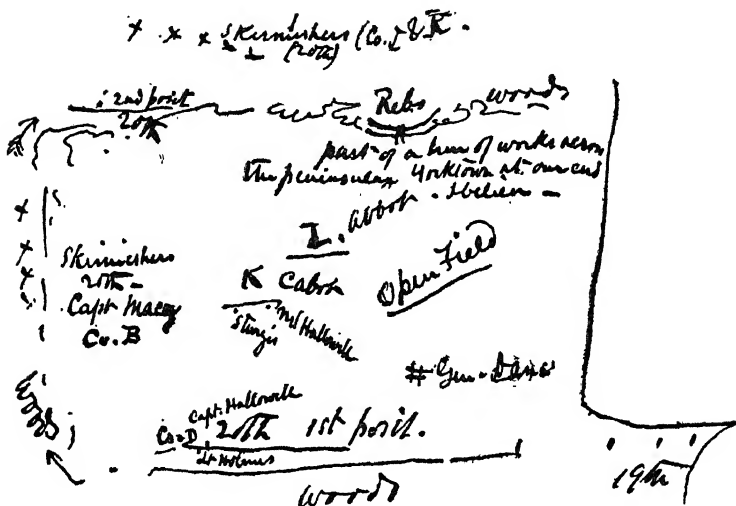 Skirmishers (Co. I & K.
(20th)
2nd posit
20th
Rebs
woods
part of a line of works across
the peninsular Yorktown at our end
I believe
I. Abbot
Skirmishers
20th
Capt Macey
Co. B
K Cabot
Sturgis
Hallowell
Open Field
# Gen. Dana
Woods
Capt. Hallowell
Co. D 20th 1st posit.
Lt Holmes
19th
woods